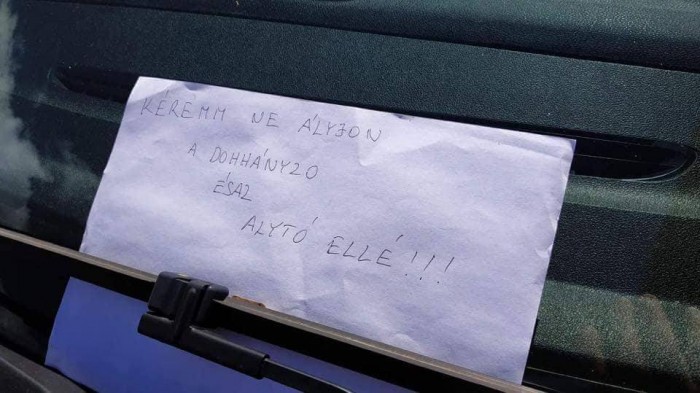 KÉREMM NE ÁLYJON
A DOHHÁNYZO
ÉSAZ
ALYTÓ ELLÉ!!!